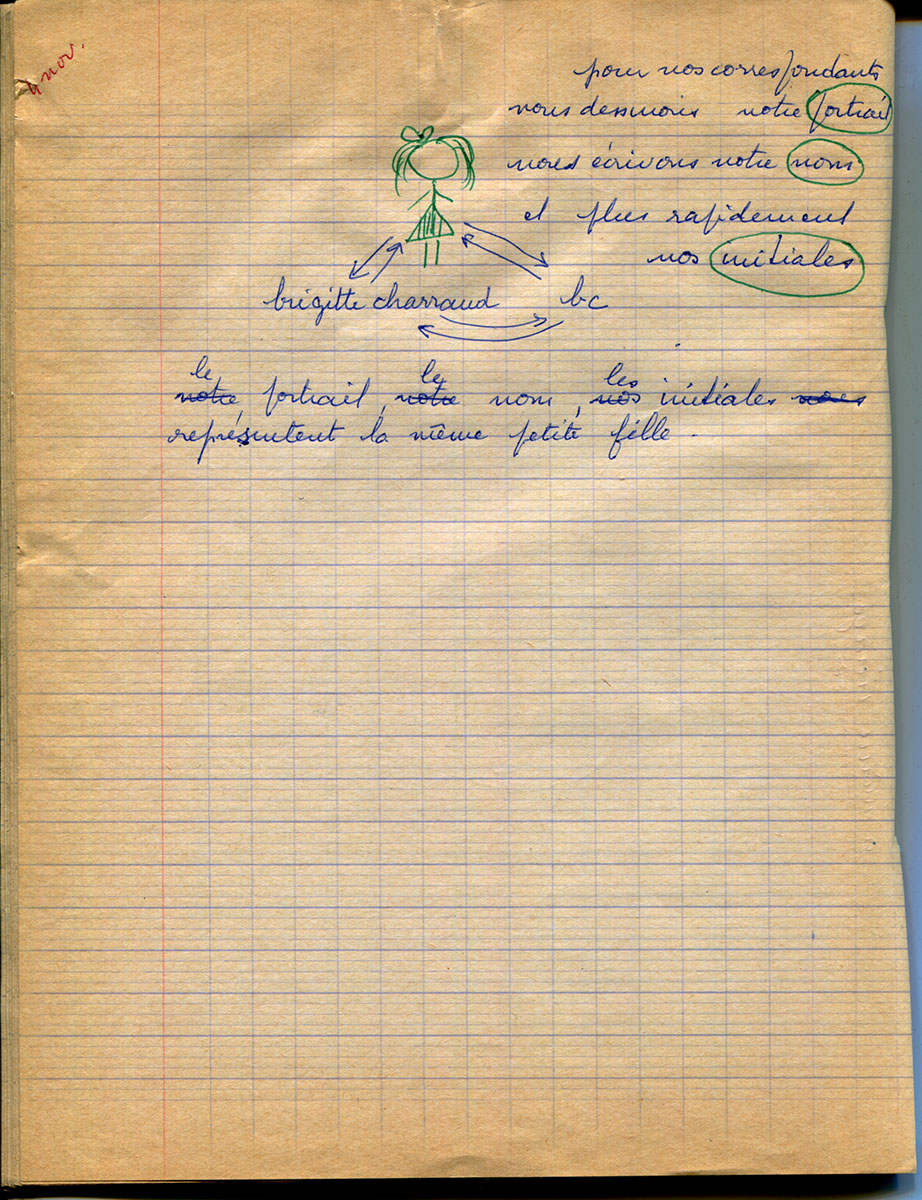 4 nov.
pour nos correspondants
nous dessinons notre portrait
nous écrivons notre nom
et plus rapidement
nos initiales
brigitte charraud bc
le le les
notre portrait, notre nom, nos initiales nous
représentent la même petite fille.